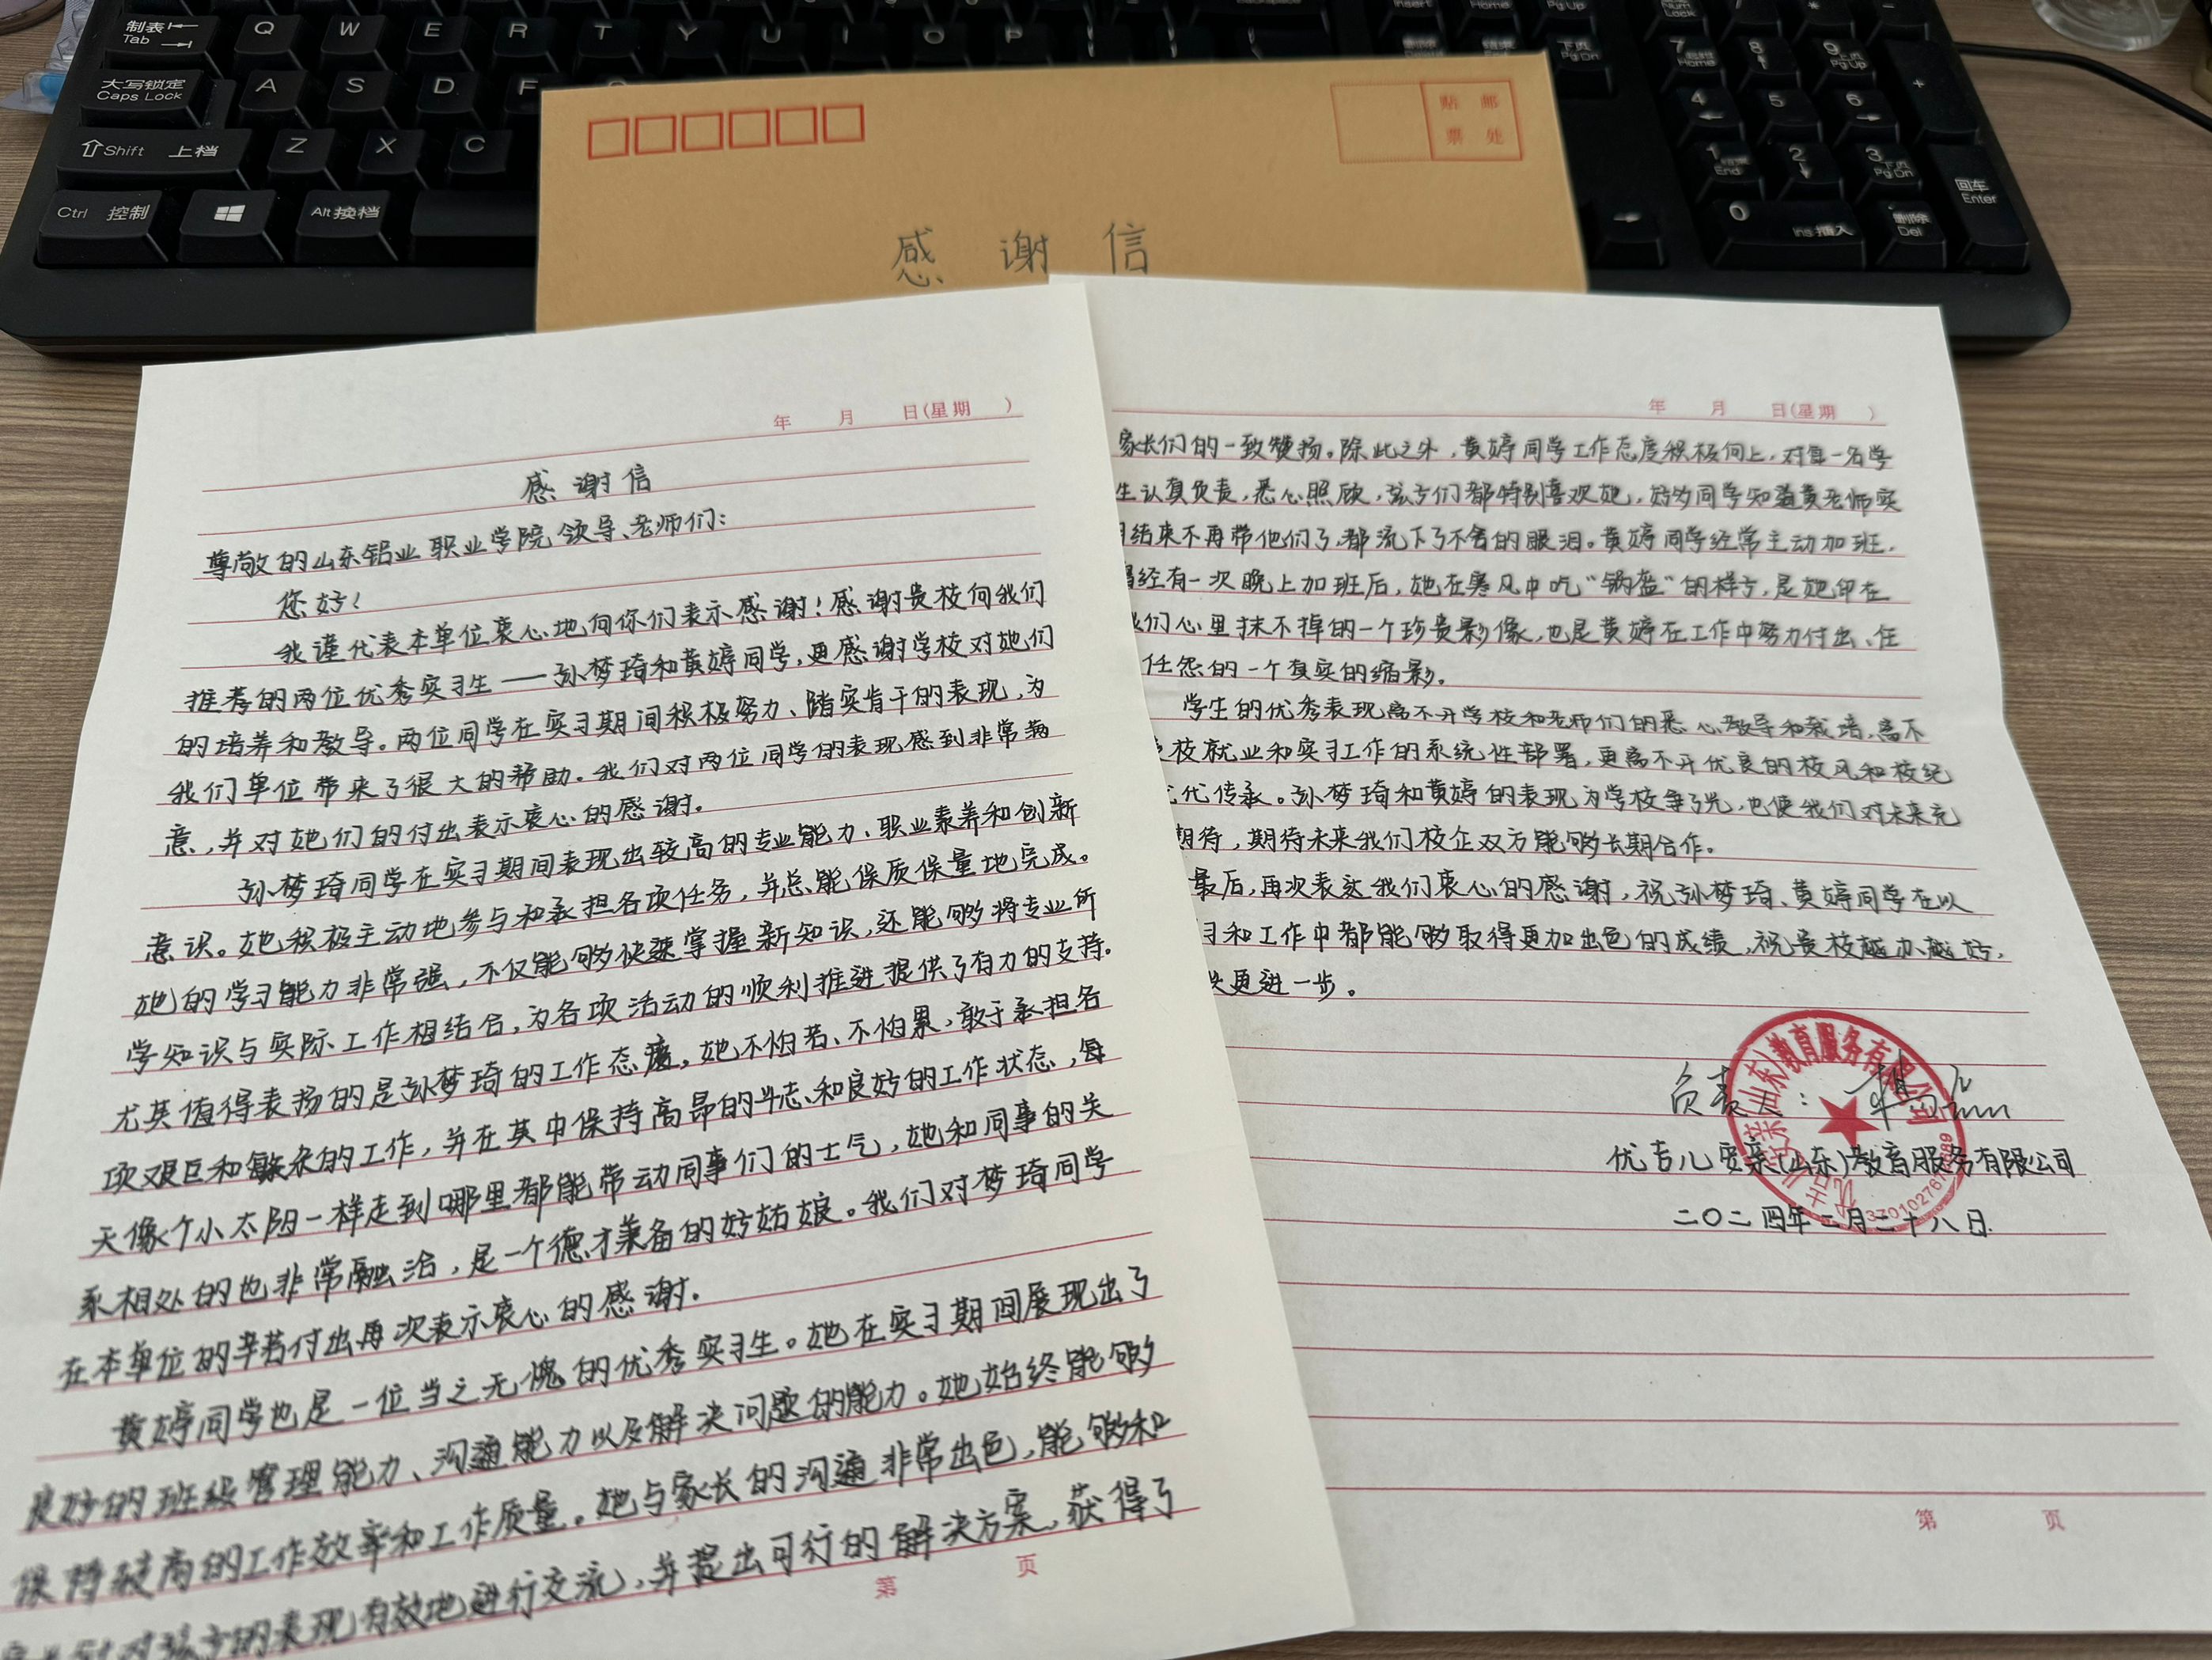 制表
Tab
Q W E R T Y U I O P
大写锁定
Caps Lock
A S D F
Shift 上档
Z X C
Ctrl 控制
Alt 换档
Num Lock
7 Home
8
9 Pg Up
4
5
6
+
1 End
2
3 Pg Dn
0 Ins 插入
Del
回车
Enter
贴 邮
票 处
感 谢 信
年 月 日(星期 )
感谢信
尊敬的山东铝业职业学院领导、老师们:
您好!
我谨代表本单位衷心地向你们表示感谢!感谢贵校向我们
推荐的两位优秀实习生——孙梦琦和黄婷同学,更感谢学校对她们
的培养和教导。两位同学在实习期间积极努力、踏实肯干的表现,为
我们单位带来了很大的帮助。我们对两位同学的表现感到非常满
意,并对她们的付出表示衷心的感谢。
孙梦琦同学在实习期间表现出较高的专业能力、职业素养和创新
意识。她积极主动地参与和承担各项任务,并总能保质保量地完成。
她的学习能力非常强,不仅能够快速掌握新知识,还能够将专业所
学知识与实际工作相结合,为各项活动的顺利推进提供了有力的支持。
尤其值得表扬的是孙梦琦的工作态度,她不怕苦、不怕累,敢于承担各
项艰巨和繁杂的工作,并在其中保持高昂的斗志和良好的工作状态,每
天像个小太阳一样走到哪里都能带动同事们的士气,她和同事的关
系相处的也非常融洽,是一个德才兼备的好姑娘。我们对梦琦同学
在本单位的辛苦付出再次表示衷心的感谢.
黄婷同学也是一位当之无愧的优秀实习生。她在实习期间展现出了
良好的班级管理能力、沟通能力以及解决问题的能力。她始终能够
保持较高的工作效率和工作质量。她与家长的沟通非常出色,能够和
对孩子的表现有效地进行交流,并提出可行的解决方案,获得了
第 页
年 月 日(星期 )
家长们的一致赞扬。除此之外,黄婷同学工作态度积极向上,对每一名学
生认真负责,悉心照顾,孩子们都特别喜欢她,好多同学知道黄老师实
结束不再带他们了,都流下了不舍的眼泪。黄婷同学经常主动加班,
曾经有一次晚上加班后,她在寒风中吃“锅盔”的样子,是她印在
我们心里抹不掉的一个珍贵影像,也是黄婷在工作中努力付出、任
任怨的一个真实的缩影.
学生的优秀表现离不开学校和老师们的悉心教导和栽培,离不
校就业和实习工作的系统性部署,更离不开优良的校风和校纪
代传承。孙梦琦和黄婷的表现为学校争了光,也使我们对未来充
期待,期待未来我们校企双方能够长期合作。
最后,再次表达我们衷心的感谢,祝孙梦琦、黄婷同学在以
习和工作中都能够取得更加出色的成绩,祝贵校越办越好,
更进一步。
负责人:
优吉儿贝亲(山东)教育服务有限公司
二〇二四年二月二十八日.
第 页